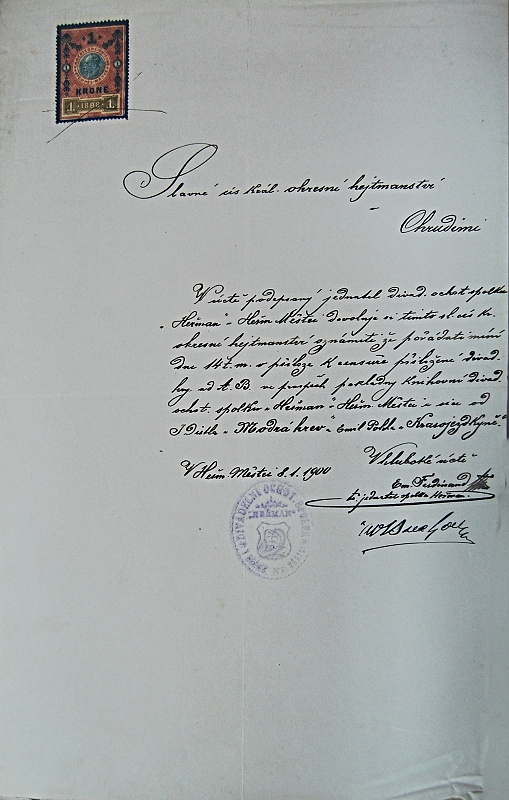 1
KRONE
1. 1898 1.
Slavné cís král. okresní hejtmanství
Chrudimi
V úctě podepsaný jednatel divad. ochot. spolku
"Heřman" Heřm. Městci dovoluje si tímto sl. cís. kr.
okresní hejtmanství oznámiti, že pořádati míní
dne 14 t. m. v příloze k censuře přiložené divad.
hry od A. B. ve prospěch pokladny knihovní divad.
ochot. spolku "Heřman" Heřm. Městci a sice od
"Modrá krev" Emil Pohl "Krasojezdkyně."
V hluboké úctě
V Heřm. Městci 8. 1. 1900
Em. Ferdinand
t. č. jednatel spolku Heřman.
DIVADELNÍ OCHOT. SPOLEK
"HEŘMAN"